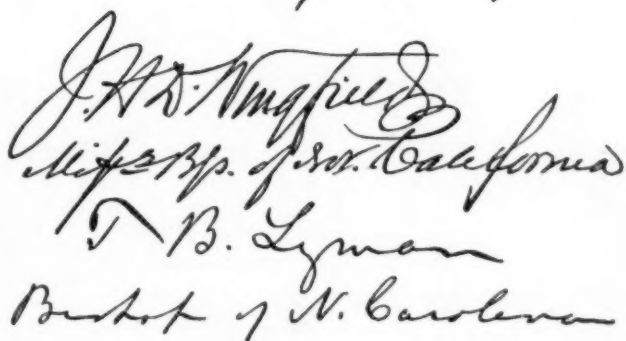 J. H. D. Wingfield
Miss. Bp. of Nor. California
T B. Lyman
Bishop of N. Carolina